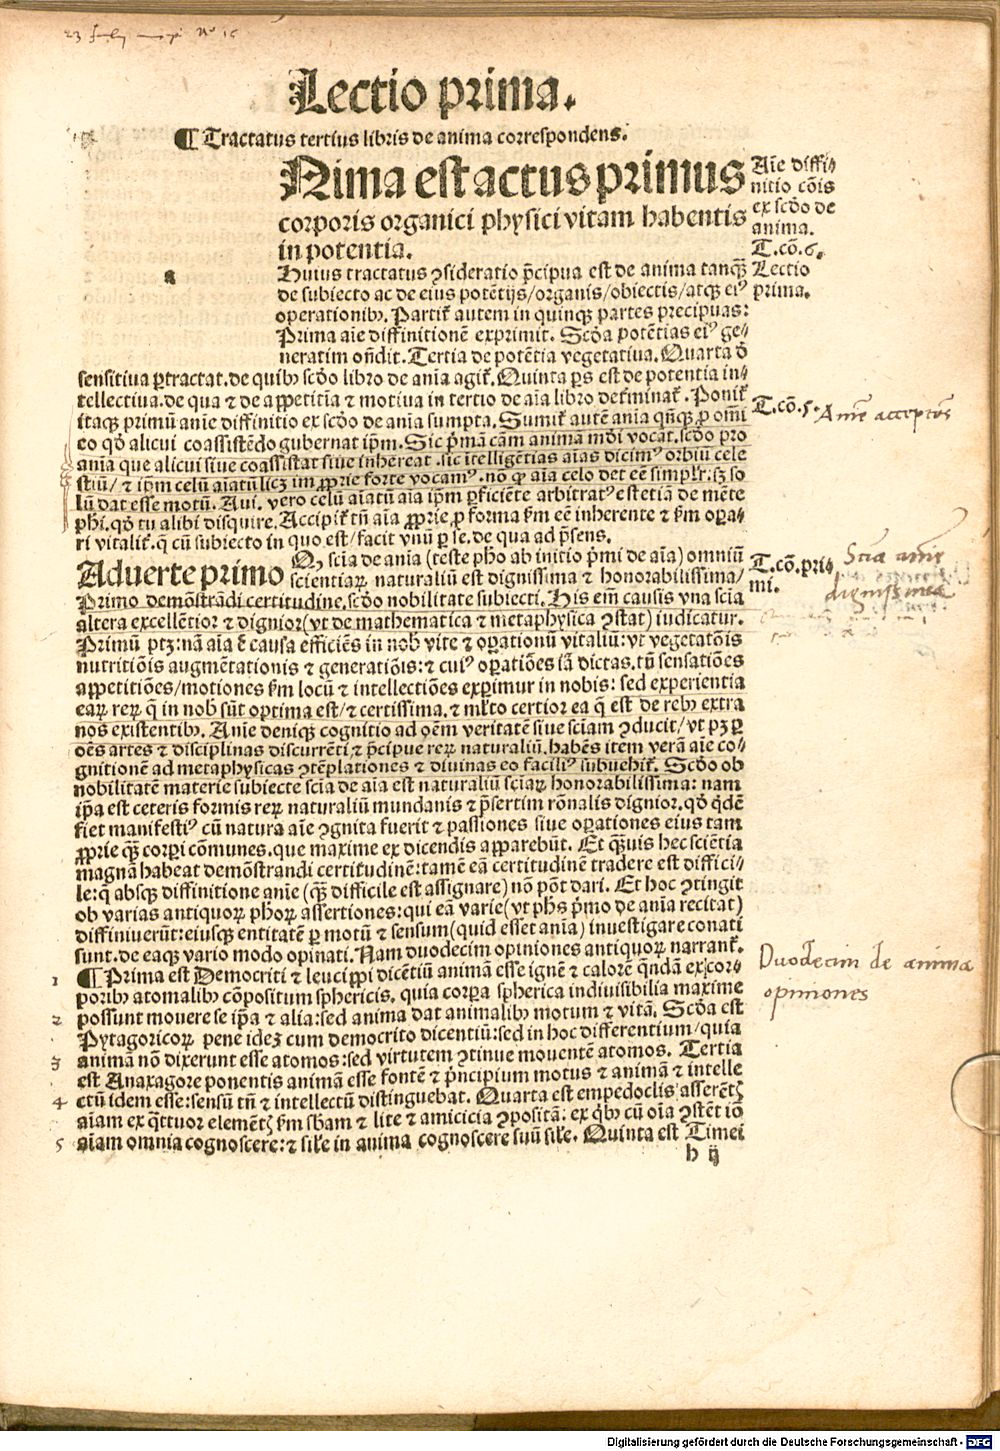 Lectio prima.
¶ Tractatus tertius libris de anima correspondens.
a
Nima est actus primus
corporis organici physici vitam habentis
in potentia.
Huius tractatus ꝯsideratio p̄cipua est de anima tanqȝ
de subiecto ac de eius potētijs/organis/obiectis/atqȝ eiꝰ
operationibꝰ. Partiť autem in quinqȝ partes precipuas:
Prima aīe diffinitionē exprimit. Scďa potētias eiꝰ ge⸗
neratim oñdit. Tertia de potētia vegetatiua. Quarta ď
sensitiua ꝑtractat. de quibꝰ scďo libro de anīa agiť. Quinta ꝑs est de potentia in⸗
tellectiua. de qua ⁊ de appetitia ⁊ motiua in tertio de aīa libro determinať. Poniť
itaqȝ primū anīe diffinitio ex scďo de anīa sumpta. Sumiť autē anīa qñqȝ ꝓ omni
eo qď alicui coassistēdo gubernat ipm̄. Sic pʼmā cām animā mōi vocat. scďo pro
anīa que alicui siue coassistat siue inhereat. sic ītelligētias aīas dicimꝰ orbiū cele
stiū/ ⁊ ipm̄ celū aīatū licȝ imꝓprie forte vocamꝰ. nō qꝫ aīa celo det eē simplr̄. sȝ so
lū dat esse motū. Aui. vero celū aīatū aīa ipm̄ ꝑficiēte arbitratꝰ est etiā de mēte
phi. qď tu alibi disquire. Accipiť tn̄ aīa ꝓprie ꝓ forma km̄ eē inherente ⁊ km̄ oꝑa⸗
ri vitaliť. q̄ cū subiecto in quo est/facit vnū ꝑ se. de qua ad pn̄sens.
Aduerte primo Qꝫ scīa de anīa (teste pho ab initio pʼmi de aīa) omniū
scientiaꝝ naturaliū est dignissima ⁊ honorabilissima/
Primo demōstrādi certitudine. scďo nobilitate subiecti. His em̄ causis vna scīa
altera excellētior ⁊ dignior (vt de mathematica ⁊ metaphysica ꝯstat) iudicatur.
Primū ptȝ: nā aīa ē causa efficiēs in nob̄ vite ⁊ oꝑationū vitaliū: vt vegetatōis
nutritiōis augmētationis ⁊ generatiōis: ⁊ cuiꝰ oꝑatiōes iā dictas. tū sensatiōes
appetitiōes/motiones km̄ locū ⁊ intellectiōes exꝑimur in nobis: sed experientia
eaꝝ reꝝ q̄ in nob̄ sūt optima est/⁊ certissima. ⁊ ml̄to certior ea q̄ est de rebꝰ extra
nos existentibꝰ. Anīe deniqȝ cognitio ad oēm veritatē siue scīam ꝯducit/vt pȝ ꝑ
oēs artes ⁊ disciplinas discurrēti ⁊ p̄cipue reꝝ naturaliū. habēs item verā aīe co⸗
gnitionē ad metaphysicas ꝯtēplationes ⁊ diuinas eo faciliꝰ subuehiť. Scďo ob
nobilitatē materie subiecte scīa de aīa est naturaliū scīaꝝ honorabilissima: nam
ip̄a est ceteris formis reꝝ naturaliū mundanis ⁊ p̄sertim rōnalis dignior. qď qďē
fiet manifestiꝰ cū natura aīe ꝯgnita fuerit ⁊ passiones siue oꝑationes eius tam
ꝓprie qȝ corꝑi cōmunes. que maxime ex dicendis apparebūt. Et qȝuis hec sciētia
magnā habeat demōstrandi certitudinē: tamē eā certitudinē tradere est difficī⸗
le: q̄ absqȝ diffinitione anīe (qȝ difficile est assignare) nō pōt dari. Et hoc ꝯtingit
ob varias antiquoꝝ phoꝝ assertiones: qui eā varie (vt phs pʼmo de anīa recitat)
diffiniuerūt: eiusqȝ entitatē ꝑ motū ⁊ sensum (quid esset anīa) inuestigare conati
sunt. de eaqȝ vario modo opinati. Nam duodecim opiniones antiquoꝝ narranť.
1 ¶ Prima est Democriti ⁊ leucippi dicētiū animā esse ignē ⁊ calorē qn̄dā ex cor⸗
poribꝰ atomalibꝰ cōpositum sphericis. quia corꝑa spherica indiuisibilia maxime
2 possunt mouere se ip̄a ⁊ alia: sed anima dat animalibꝰ motum ⁊ vitā. Scďa est
Pytagoricoꝝ pene ideȝ cum democrito dicentiū: sed in hoc differentium/quia
3 animā nō dixerunt esse atomos: sed virtutem ꝯtinue mouentē atomos. Tertia
est Anaxagore ponentis animā esse fontē ⁊ pʼncipium motus ⁊ animā ⁊ intelle
4 ctū idem esse: sensū tn̄ ⁊ intellectū distinguebat. Quarta est empedoclis asserētꝭ
aīam ex q̄ttuor elemētꝭ km̄ sbam ⁊ lite ⁊ amicicia ꝯpositā: ex qʼbꝰ cū oīa ꝯstēt iō
5 aīam omnia cognoscere: ⁊ sił̄e in anima cognoscere suū sił̄e. Quinta est Timei
h ij
Aīe diffi⸗
nitio cōis
ex scďo de
anima.
T.cō.6.
Lectio
prima.
T.cō.5.
Anīe acceptōs
T.cō.pri⸗
mi.
Scīa anīe
dignissima
Duodecim de anima
opiniones
Digitalisierung gefördert durch die Deutsche Forschungsgemeinschaft - DFG